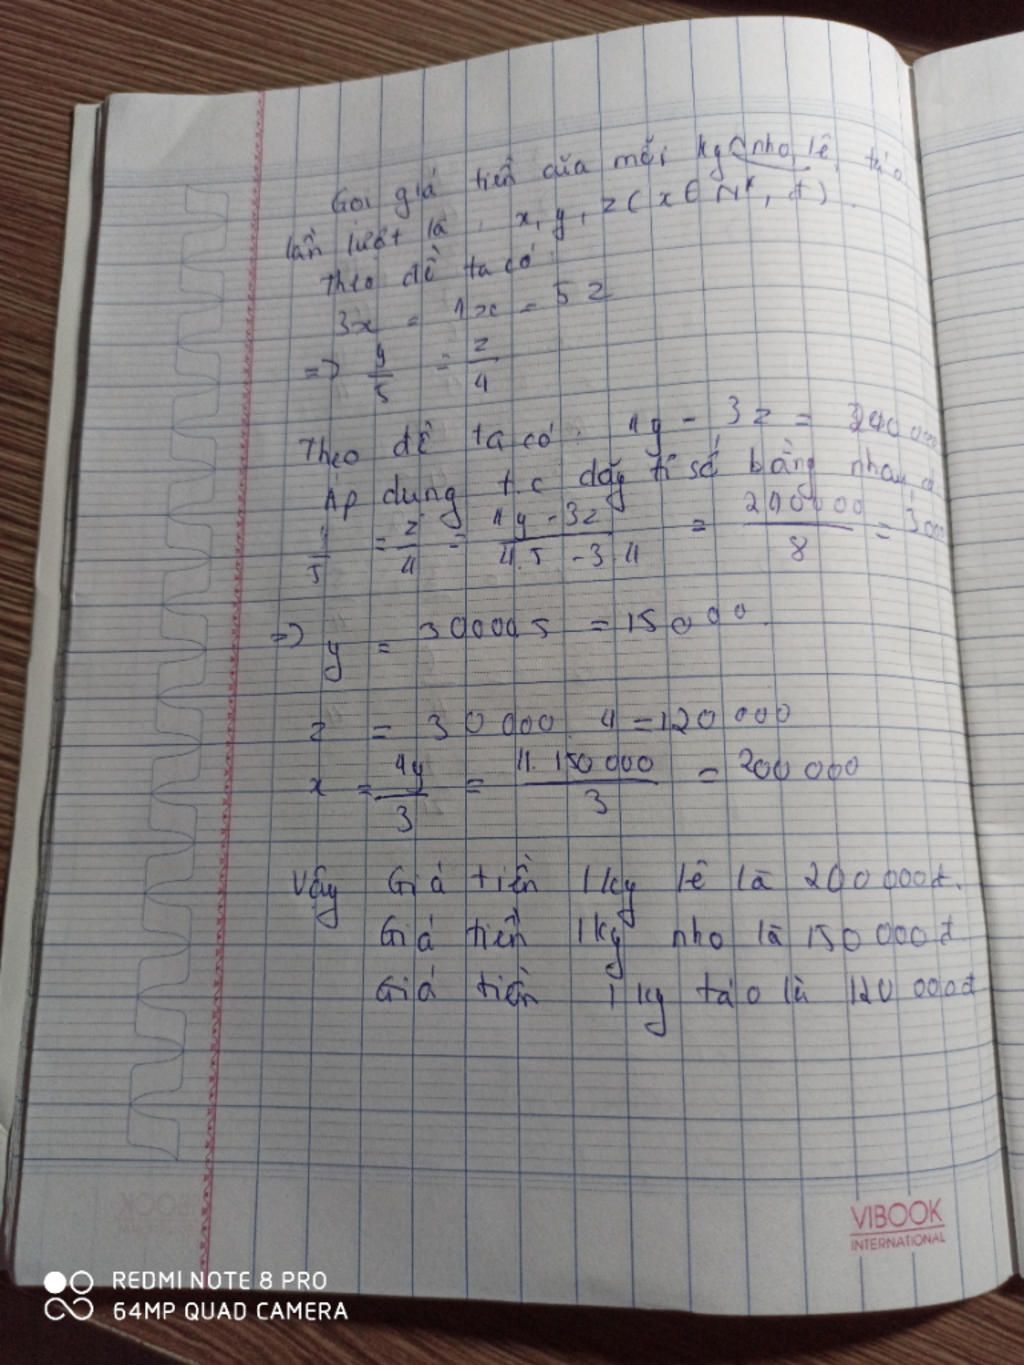 Gọi giá tiền của mỗi kg nho, lê, táo
lần lượt là x, y, z (x ∈ N*, đ).
Theo đề ta có
3x = 4x = 5z
=> y/5 = z/4
Theo đề ta có: 4y - 3z = 240 000
Áp dụng t.c dãy tỉ số bằng nhau
y/5 = z/4 = 4y - 3z / 4.5 - 3.4 = 240000 / 8 =
=> y = 30000.5 = 150 00
z = 30 000. 4 = 120 000
x = 4y/3 = 4. 150 000 / 3 = 200 000
Vậy Giá tiền 1kg lê là 200 000đ.
Giá tiền 1kg nho là 150 000đ
Giá tiền 1kg táo là 120 000đ
VIBOOK
INTERNATIONAL
REDMI NOTE 8 PRO
64MP QUAD CAMERA